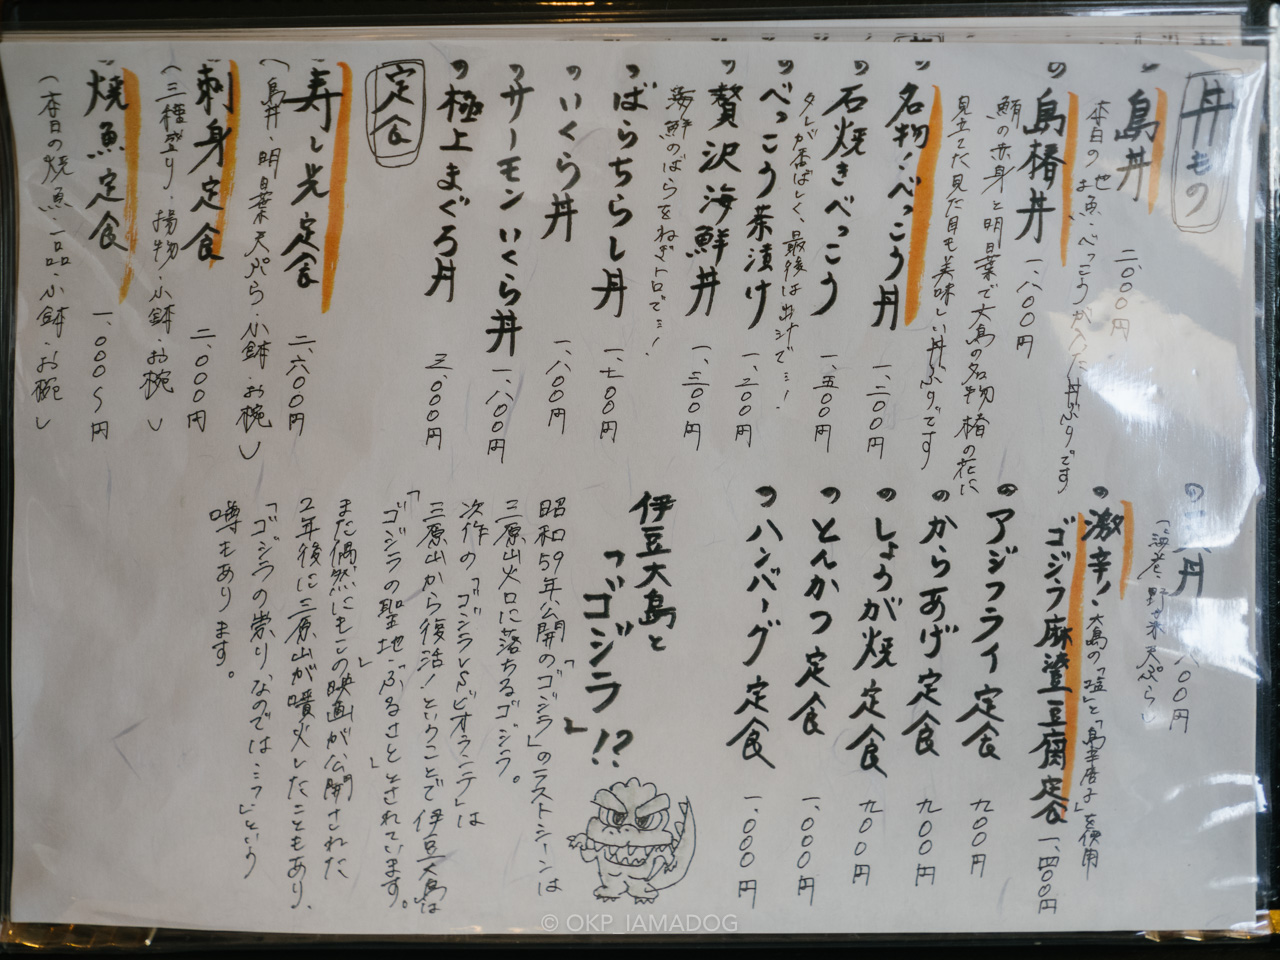 丼もの
島丼 二、〇〇〇円
本日の地お魚・べっこうが入った丼ぶりです
島椿丼 一、八〇〇円
鮪の赤身と明日葉で大島の名物椿の花に
見立てた見た目も美味しい丼ぶりです
名物！べっこう丼 一、二〇〇円
石焼きべっこう 一、五〇〇円
タレが香ばしく、最後は出汁で…！
べっこう茶漬け 一、二〇〇円
贅沢海鮮丼 一、五〇〇円
海鮮のばらをねぎトロで…！
ばらちらし丼 一、七〇〇円
いくら丼 一、八〇〇円
サーモンいくら丼 一、八〇〇円
極上まぐろ丼 三、〇〇〇円
定食
寿し光定食 二、六〇〇円
（島丼・明日葉天ぷら・小鉢・お椀）
刺身定食 二、〇〇〇円
（三種盛り・揚物・小鉢・お椀）
焼魚定食 一、〇〇〇〜円
（本日の焼魚一品・小鉢・お椀）
丼 八〇〇円
（海老、野菜天ぷら）
激辛！大島の「塩」と「島唐辛子」を使用
ゴジラ麻婆豆腐定食 一、四〇〇円
アジフライ定食 九〇〇円
からあげ定食 九〇〇円
しょうが焼定食 九〇〇円
とんかつ定食 一、〇〇〇円
ハンバーグ定食 一、〇〇〇円
伊豆大島と
「ゴジラ」!?
昭和59年公開の「ゴジラ」のラストシーンは
三原山火口に落ちるゴジラ。
次作の「ゴジラvsビオランテ」は
三原山から復活！ということで伊豆大島は
「ゴジラの聖地・ふるさと」とされています。
また偶然にもこの映画が公開された
2年後に三原山が噴火したこともあり、
「ゴジラの祟りなのでは…？」という
噂もあります。
© OKP_IAMADOG